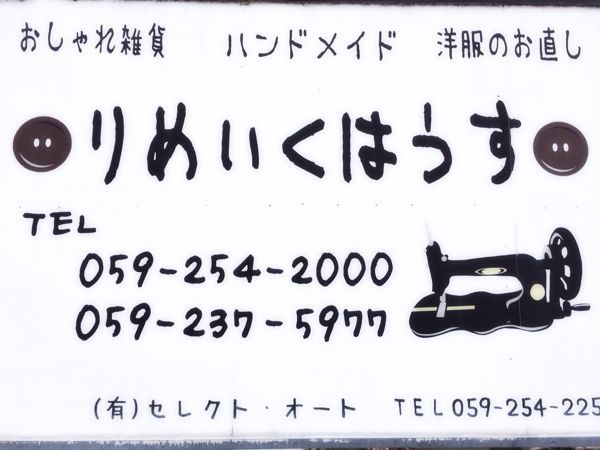 おしゃれ雑貨 ハンドメイド 洋服のお直し
りめいくはうす
TEL
059-254-2000
059-237-5977
(有)セレクト・オート TEL059-254-225